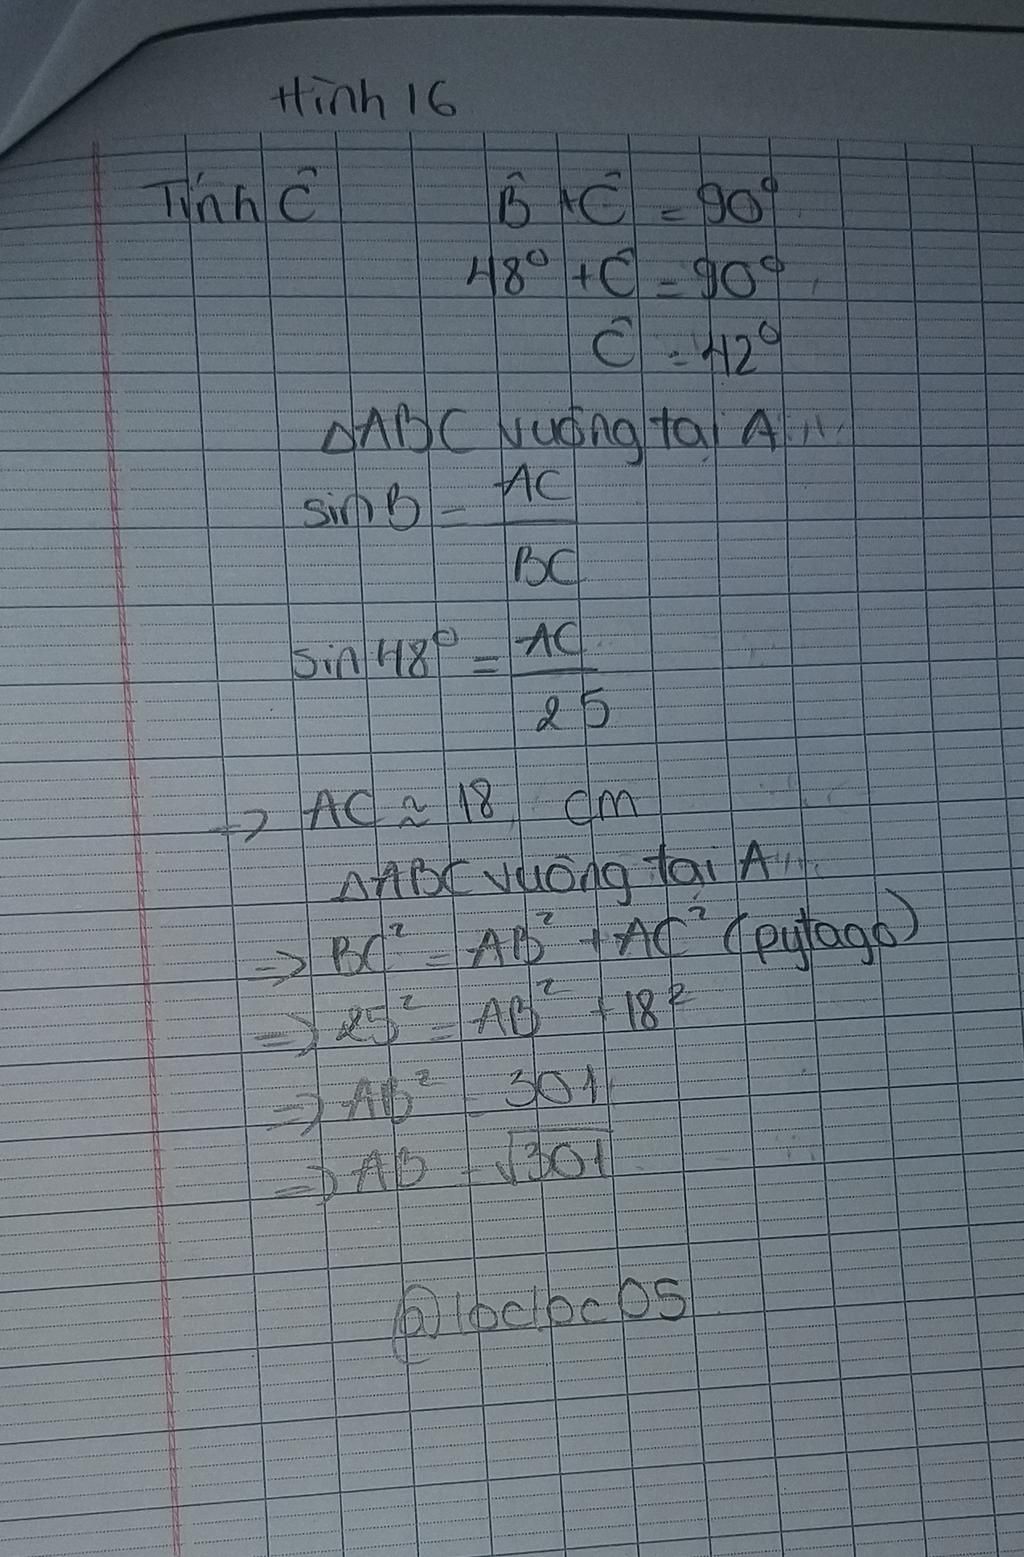 Hình 16
Tính Ĉ
B̂ + Ĉ = 90°
48° + Ĉ = 90°
Ĉ = 42°
ΔABC vuông tại A
sin B = AC / BC
sin 48° = AC / 25
=> AC ≈ 18 cm
ΔABC vuông tại A
=> BC² = AB² + AC² (pytago)
=> 25² = AB² + 18²
=> AB² = 301
=> AB = √301
@locloc05